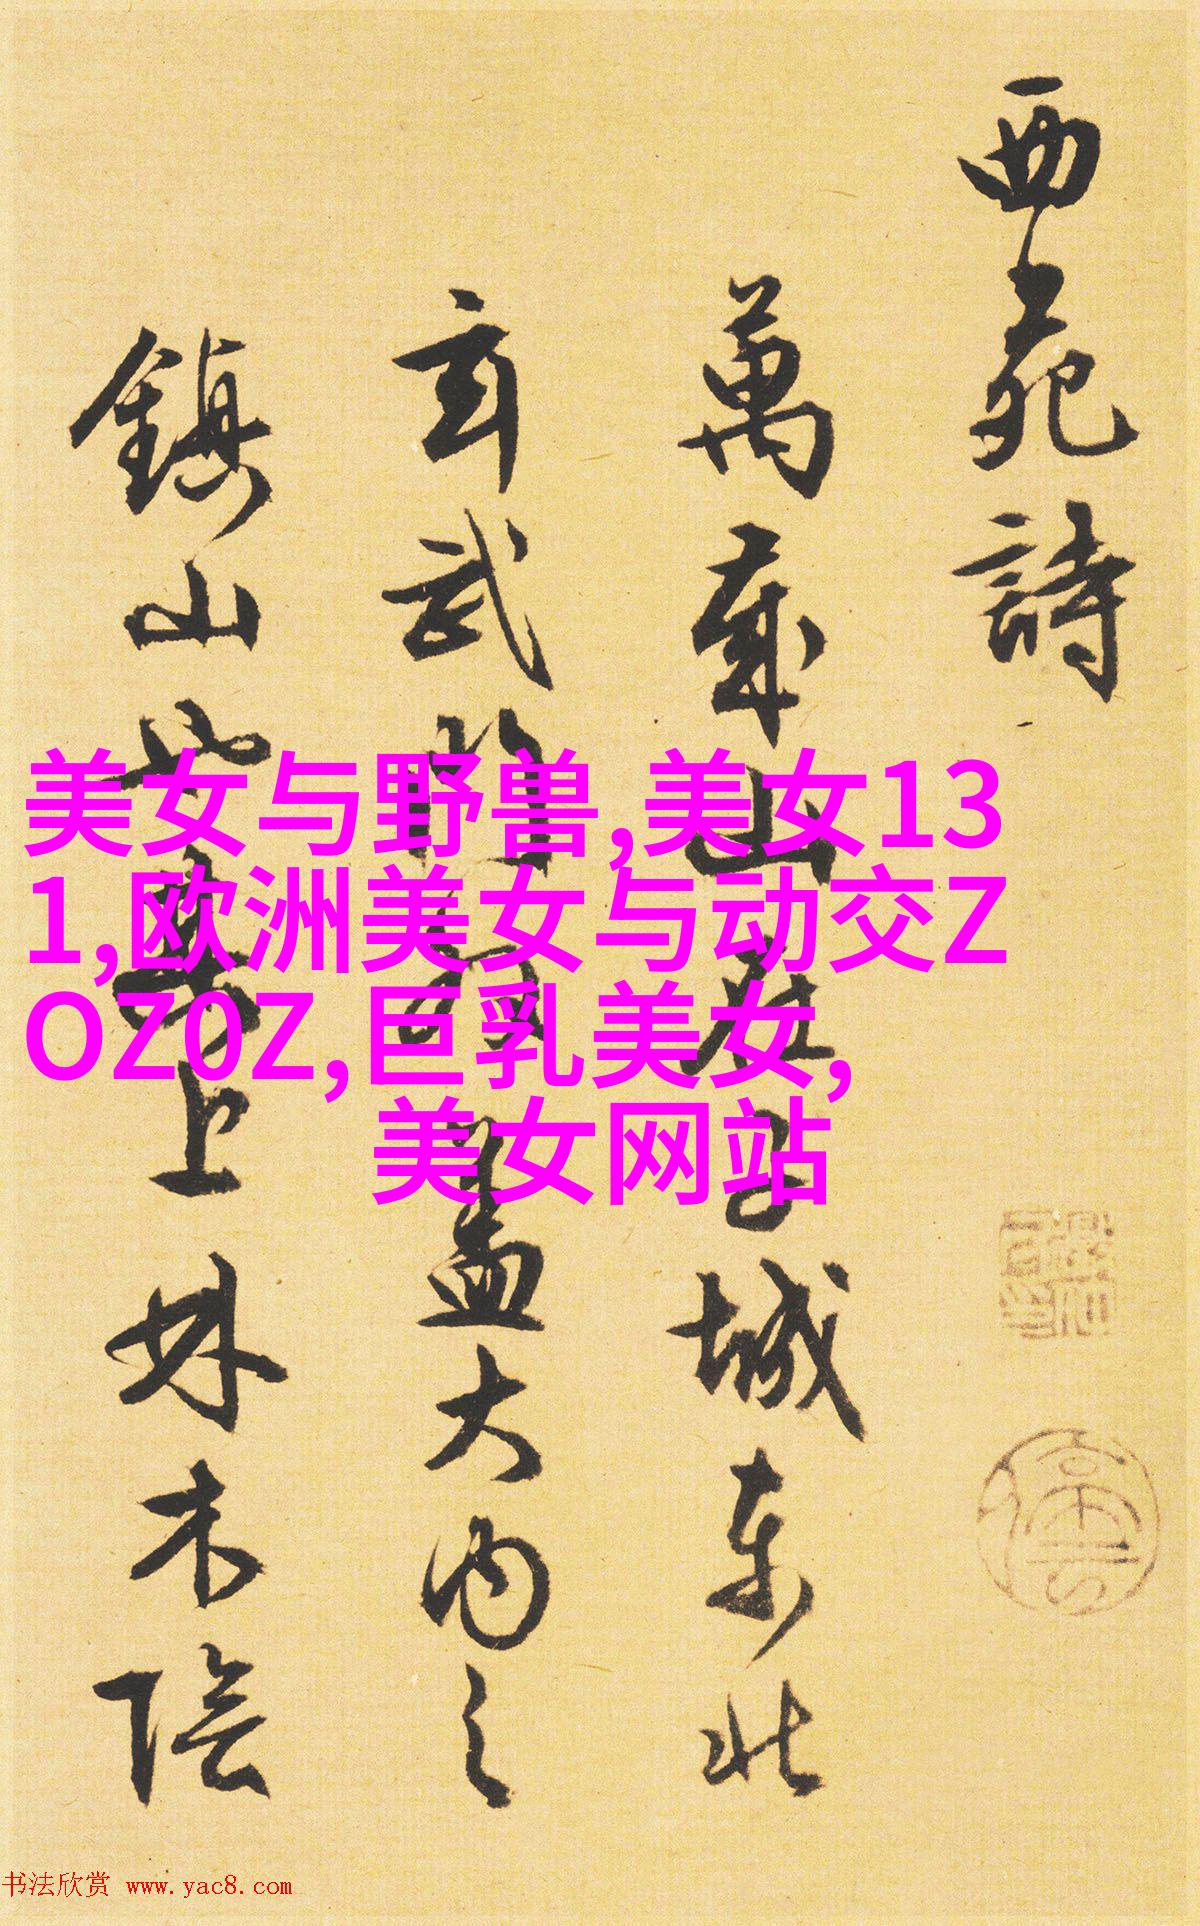 西苑詩
萬歲山在子城東北
玄武門蓋大內之
鎮山也其上林木陰
美女与野兽,美女13
1,欧洲美女与动交Z
OZ0Z,巨乳美女,
美女网站
书法欣赏 www.yac8.com